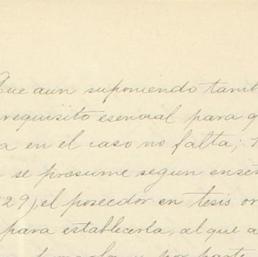 Que aun suponiendo tamb
requisito esencial para q
a en el caso no falta;
se presume segun ense
29), el poseedor en tesis or
para establecerla, al que a
por parte